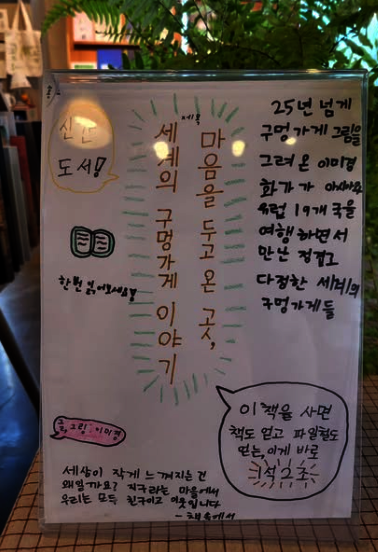 신간
도서!
한번 읽어보세요
제목
마음을 두고 온 곳,
세계의 구멍가게 이야기
25년 넘게
구멍가게 그림을
그려온 이미경
화가가 아시아와
유럽 19개국을
여행하면서
만난 정겹고
다정한 세계의
구멍가게들
글, 그림: 이미경
세상이 작게 느껴지는 건
왜일까요? 지구라는 마을에서
우리는 모두 친구이고 이웃입니다
- 책 속에서
이 책을 사면
책도 얻고 파일철도
얻는, 이게 바로
1석 2조